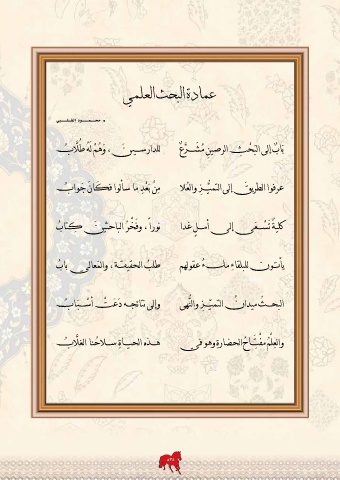 عمادة البحث العلمي
د. محمود الحليبي
بَابٌ إلى البَحْثِ الرصينِ مُشَرَّعٌ للدارسين ، وَهُمْ لَهُ طُلَّابُ
عرفوا الطريقَ إلى التميُّزِ والعُلا مِنْ بَعْدِ ما سألوا فكَانَ جَوابُ
كليةٌ تَسْعَى إلى أملٍ غدا نوراً ، وفَخْرُ الباحثينَ كتابُ
يأتون للبلقاء ملءُ عقولهم طلبُ الحقيقةِ، والمَعالي بابُ
البحثُ ميدانُ التميّزِ والنُّهى وإلى نتائجه دَعَتْ أسْبَابُ
والعِلْمُ مِفْتَاحُ الحضارةِ وهو في هذه الحياةِ سلاحُنا الغلَّابُ